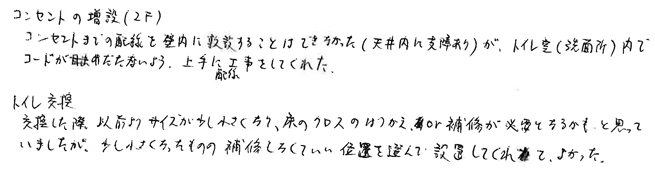 コンセントの増設(2F)
コンセントまでの配線を壁内に敷設することはできなかった(天井内に支障あり)が、トイレ室(洗面所)内で
コードが目立たないよう、上手に配線工事をしてくれた。
トイレ交換
交換した際、以前よりサイズが少し小さくなり、床のクロスのはりかえor補修が必要となるかも、と思って
いましたが、少し小さくなったものの補修しなくていい位置を選んで設置してくれて、よかった。